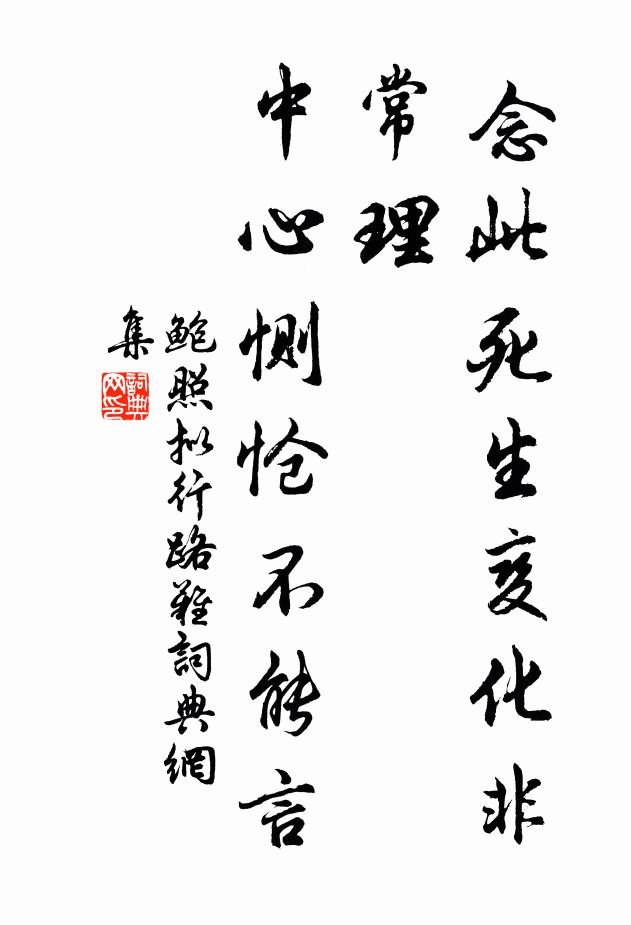 念此死生变化非
常理
中心恻怆不能言
鲍照拟行路難詞典網
集
詞典
网印